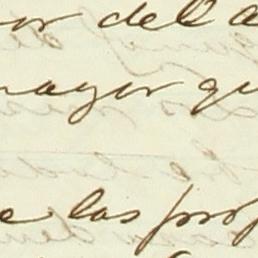 or del a
mayor qu
e las prop